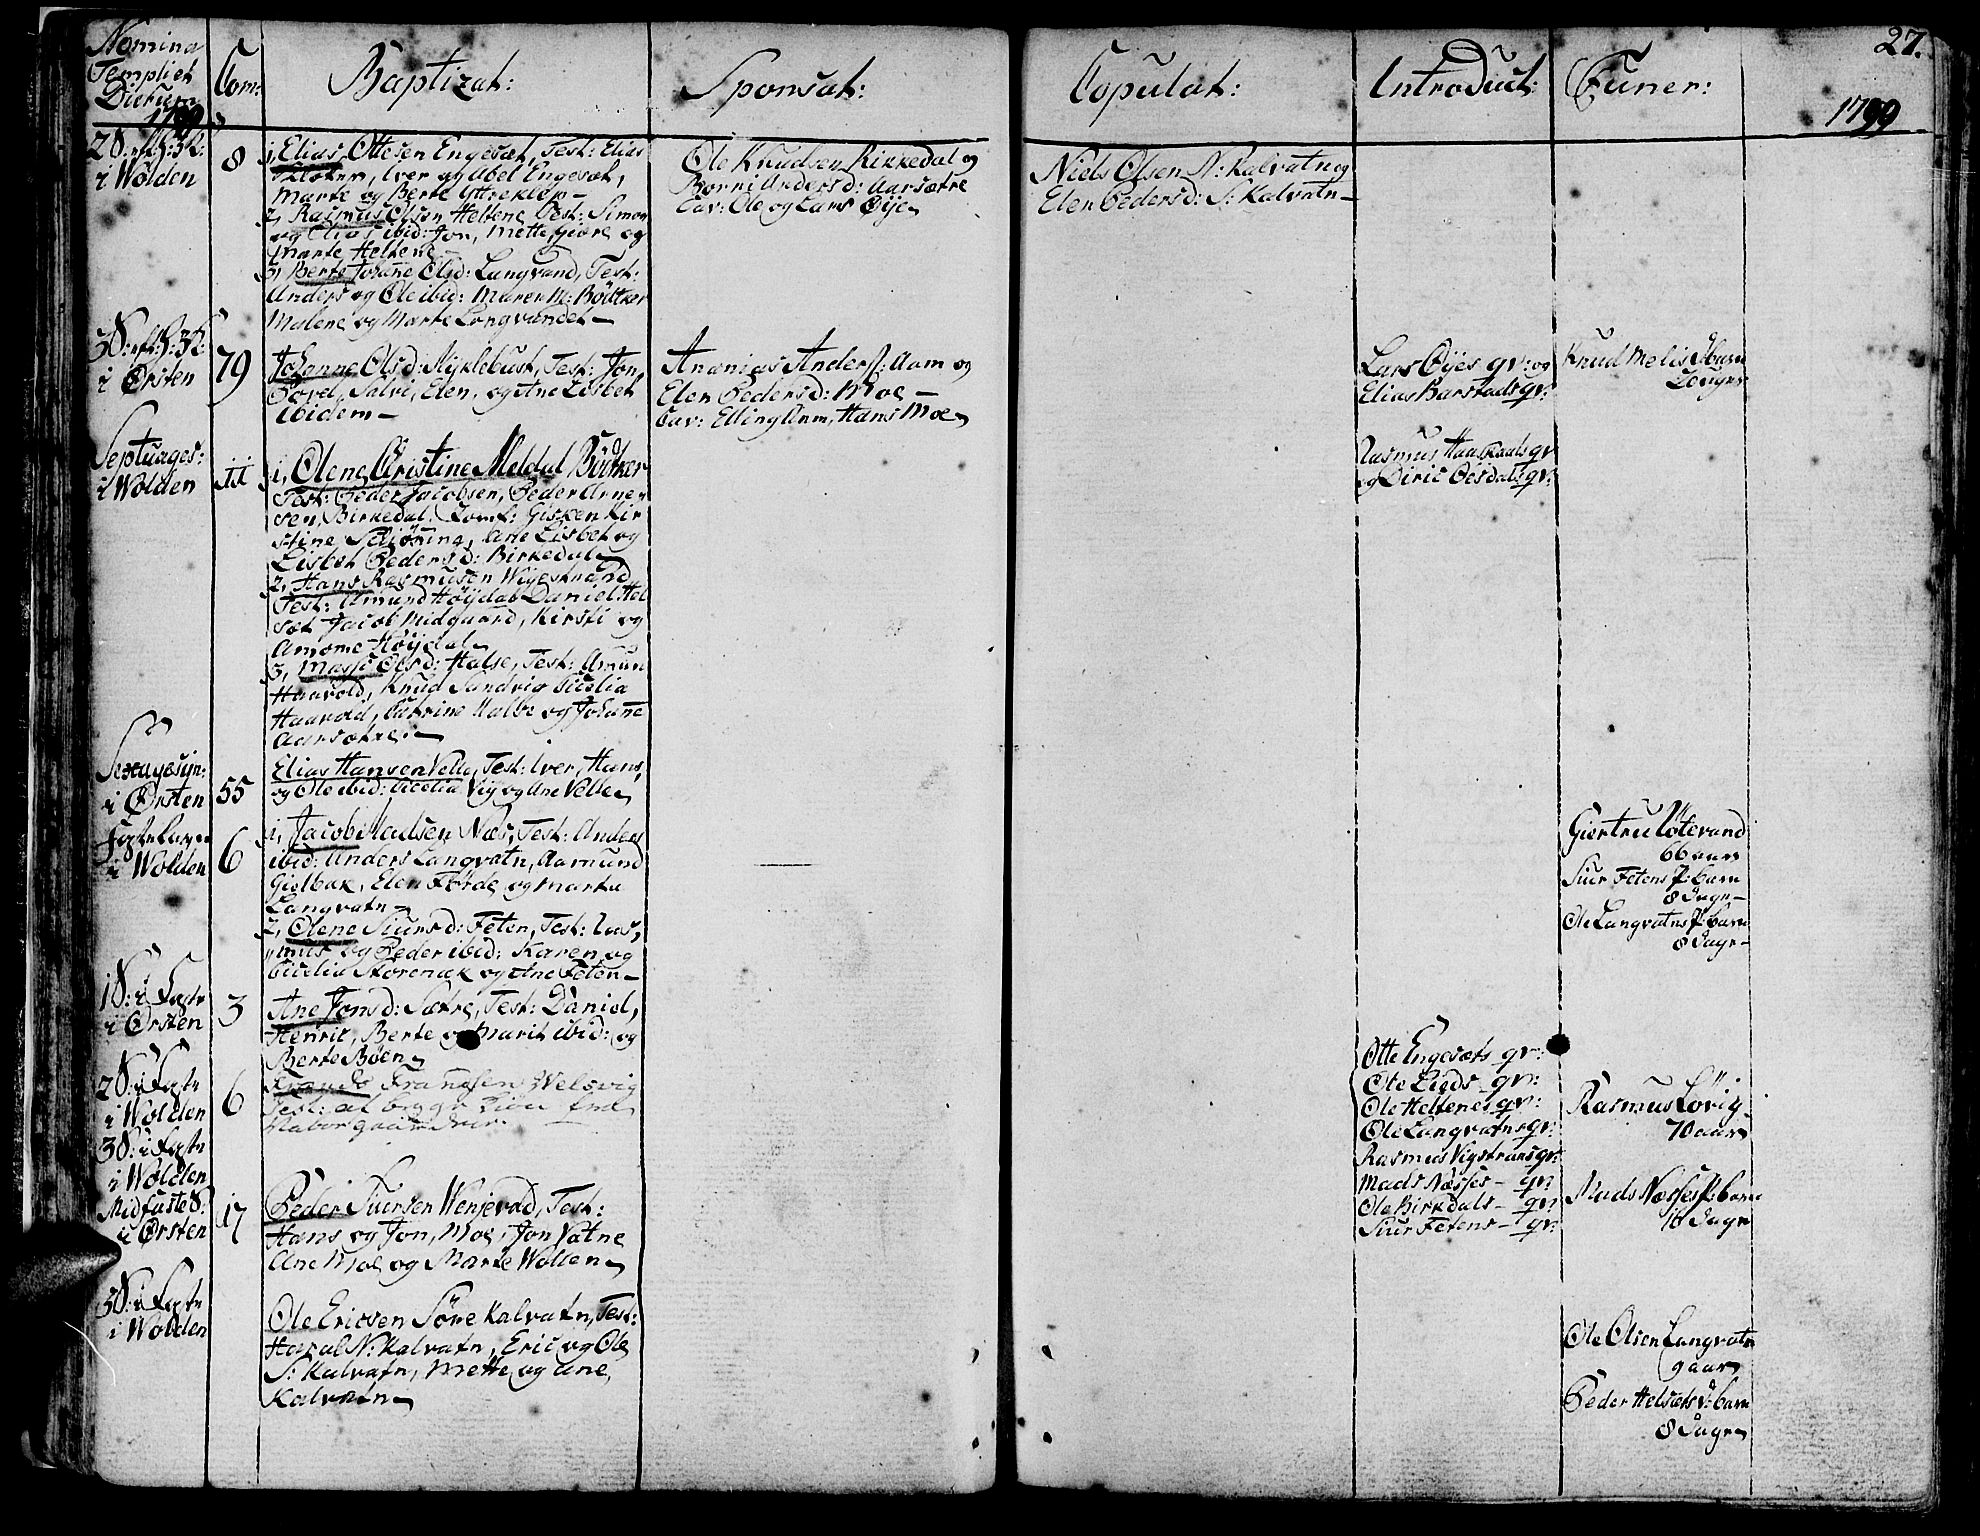 Nomina
Templi et
Dierum
1799
Com:
Baptizat:
Sponsat:
Copulat:
Introduct:
Funer:
27.
1799
2 S: eft: H: 3 K:
i Wolden
8
1, Elias Ottesen Engeset, Test: Elias
Iver og Abel Engeset,
Marte og Berte Yttreklep -
2, Rasmus Olsen Heltene Test: Simon
og Elias ibid: Jon, Mette, giøre og
Marte Heltene -
3, Berte Johanne Olsd: Langvand, Test:
Anders og Ole ibid: Maren M: Bödtker
Malene og Marte Longvandet -
Ole Knudsen Birkedal og
Borni Andersd: Aarsætre
Cav: Ole og Lars Øye
Niels Olsen N: Kalvatn og
Elen Pedersd: S: Kalvatn -
3 S: eft: H: 3 K:
i Ørsten
79
Johanne Olsd: Myklebust, Test: Jon,
Povel, Salvi, Elen, og Ane Lisbet
ibidem -
Ananias Anders: Aam og
Elen Pedersd: Moe -
Cav: Elling Aam, Hans Moe
Lars Øyes qv: og
Elias Barstads qv:
Knud Melis barn
Septuages:
i Wolden
11
1, Olene Christine Meldal Bödtker
Test: Peder Jacobsen, Peder Arne-
sen, Birkedal. Jomf: Gisken Kir-
stine Schjöning, Ane Lisbet og
Lisbet Pedersd: Birkedal
2, Hans Rasmusen Wigestrand
Test: Amund Høydal Daniel Hel-
set Jacob Midgaard, Kirsti og
Anjome Høydal
3, Massi Olsd: Halse, Test: Amun
Haavold, Knud Sandvig Cicelia
Haavold, Catrine Halse og Johane
Aarsætre. -
Rasmus qv
og Diric Oesdals qv:
Sexagesim:
i Ørsten
55
Elias Hansen Velle, Test: Iver, Hans,
og Ole ibid: Cicelia Vig og Ane Velle
Fastelavn
i Wolden
6
1, Jacob Madsen Næs, Test: Anders
ibid: Anders Langvatn, Aamund
Gielbak, Elen Förde, og Marta
Langvatn -
2, Olene Siursd: Feten, Test: Ras,
mus og Peder ibid: Karen og
Cicelia Storenæk og Ane Feten -
Giertru Løtevand
66 aar
Siur Fetens P: barn
8 Dage -
Ole Langvatns P: barn
8 Dage -
1 S: i Faste
i Ørsten
3
Ane Jonsd: Sætre, Test: Daniel,
Henric, Berte og Marit ibid: og
Berte Böen
2 S: i Faste
i Wolden
6
Fransen Welsvig
Test:
Otte Engesets qv:
Ole Lieds qv:
Ole Heltenes qv:
Ole Langvatns qv:
Rasmus Vigstrans qv:
Mads Næsses - qv:
Ole Birkdals - qv:
Siur Fetens - qv:
Rasmus Løvig
70 aar
3 S: i Faste
i Wolden
Midfaste S:
i Ørsten
17
Peder Siursen Wenjevold, Test:
Hans og Jon, Moe, Jon Vatne
Ane Moe og Marte Wollen
Mads Næsses P: barn
16 Dage
5 S: i Faste
i Wolden
Ole Ericsen Söre Kalvatn, Test:
Haral N: Kalvatn, Eric og Ole
S: Kalvatn, Mette og Ane
Kalvatn
Ole Olsen Langvatn
9 aar
Peder Helsets barn
8 Dage